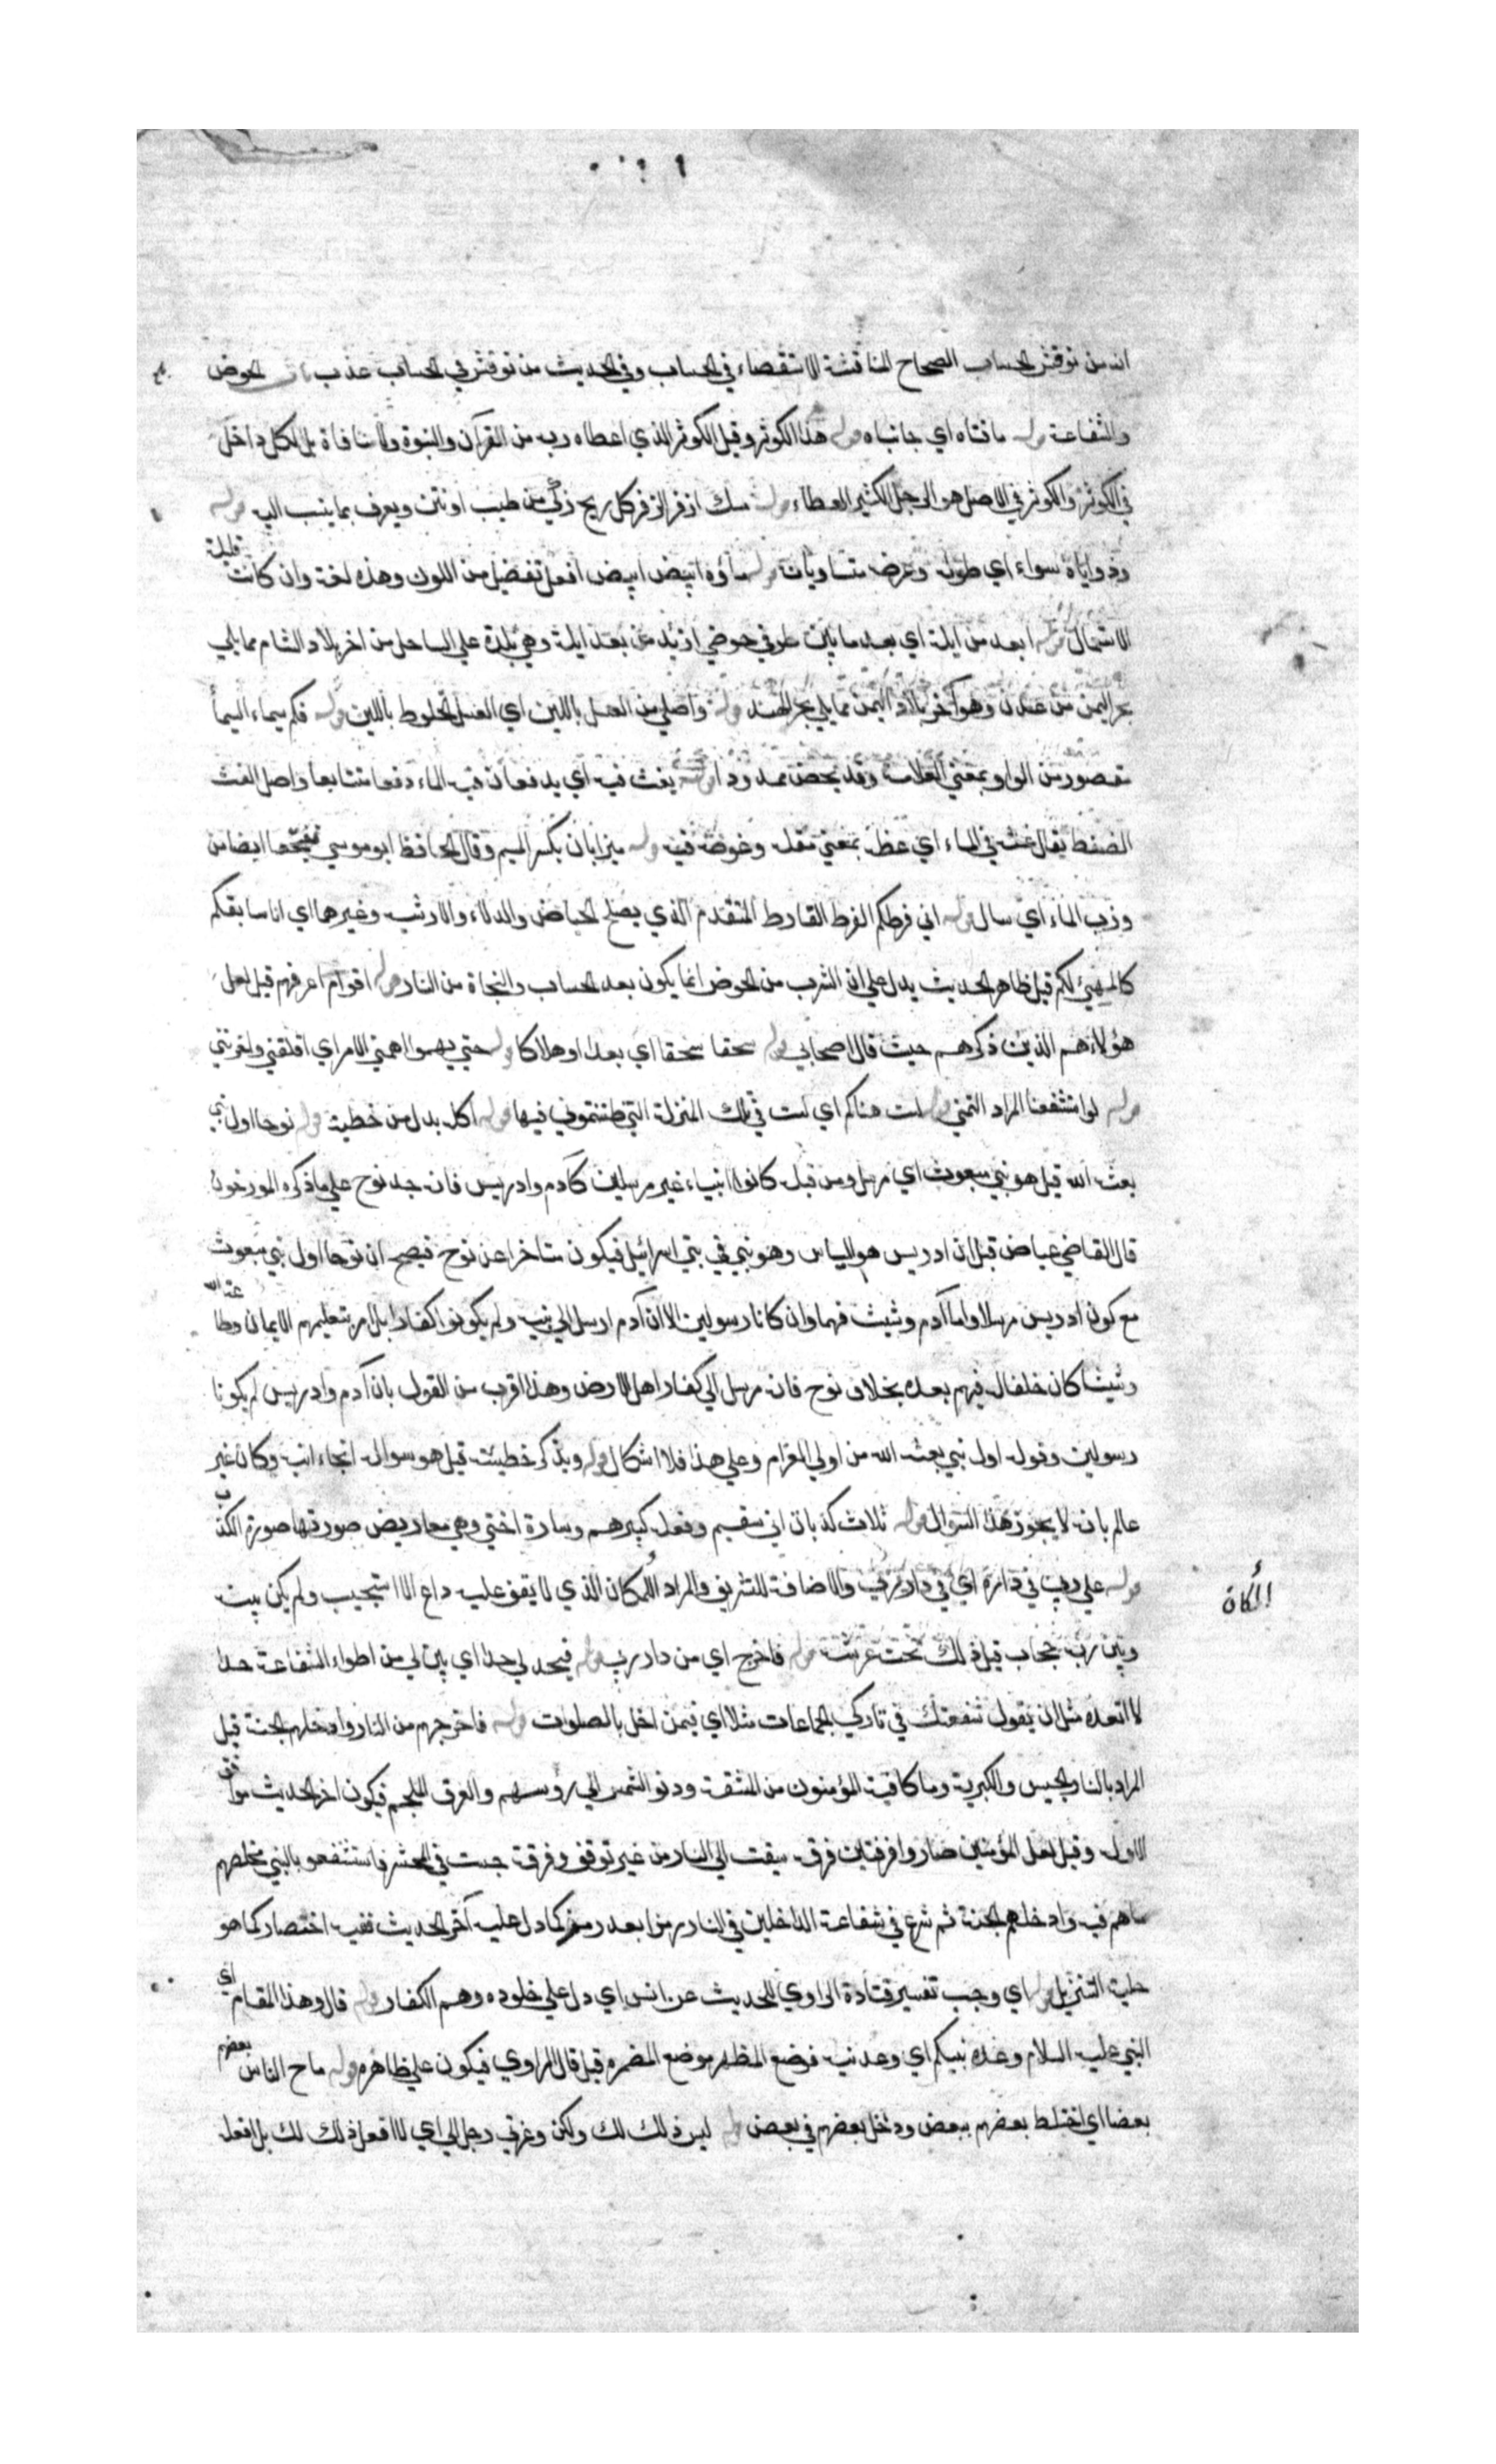 انه من نوقش الحساب الصحاح المناقشة الاستقصاء في الحساب وفي الحديث من نوقش في الحساب عذب باب الحوض
والشفاعة قوله حافتاه اي جانباه قوله هذا الكوثر وقيل الكوثر الذي اعطاه ربه من القرآن والنبوة ولا منافاة بل الكل داخل
في الكوثر والكوثر في الاصل هو الرجل الكثير العطاء قوله مسك اذفر الزفر كل ريح ذكي من طيب او نتن ويعرف بما ينسب اليه قوله
وزواياه سواء اي طوله وعرضه متساويان قوله ماؤه ابيض ابيض افعل تفضيل من اللون وهذه لغة وان كانت قليلة
الاستعمال قوله ابعد من ايلة اي بعد ما بين طرفي حوضي ازيد من بعد ايلة وهي بلدة علي الساحل من اخر بلاد الشام مما يلي
بحر اليمن من عدن وهو آخر بلاد اليمن مما يلي بحر الهند قوله واحلي من العسل باللبن اي العسل المخلوط باللبن قوله فلكم سيماء السيما
مقصور من الواو بمعني العلامة وقد يجئ ممدودا قوله يغث فيه اي يدفعان فيه الماء دفعا متتابعا واصل الغث
الضغط يقال غثه في الماء اي غطه بمعني مقله وغوصه فيه قوله ميزابان بكسر الميم وقال الحافظ ابو موسي بفتحها ايضا من
وزب الماء اي سال قوله اني فرطكم الفرط الفارط المتقدم الذي يصلح الحياض والدلاء والارشية وغيرهما اي انا سابقكم
كالمهيئ لكم قيل ظاهر الحديث يدل علي ان الشرب من الحوض انما يكون بعد الحساب والنجاة من النار قوله اقوام اعرفهم قيل لعل
هؤلاء هم الذين ذكرهم حيث قال اصحابي قوله سحقا سحقا اي بعدا وهلاكا قوله حتي يهموا اهمني الامر اي اقلقني واحزنني
قوله لو استشفعنا المراد التمني قوله لست هناكم اي لست في تلك المنزلة التي ظننتموني فيها قوله اكله بدل من خطيئته قوله نوحا اول نبي
بعثه الله قيل هو نبي مبعوث اي مرسل ومن قبله كانوا انبياء غير مرسلين كآدم وادريس فانه جد نوح علي ما ذكره المورخون
قال القاضي عياض قيل ان ادريس هو الياس وهو نبي في بني اسرائيل فيكون متاخرا عن نوح فيصح ان نوحا اول نبي مبعوث
مع كون ادريس مرسلا واما آدم وشيث فهما وان كانا رسولين الا ان آدم ارسل الي بنيه ولم يكونوا كفارا بل امر بتعليمهم الايمان وطاعة الله
وشيثا كان خلفا له فيهم بعده بخلاف نوح فانه مرسل الي كفار اهل الارض وهذا اقرب من القول بان آدم وادريس لم يكونا
رسولين وقوله اول نبي بعثه الله من اولي العزام وعلي هذا فلا اشكال قوله ويذكر خطيئته قيل هو سواله انجاء ابنه وكان غير
عالم بانه لا يجوز هذا السوال قوله ثلاث كذبات اني سقيم وفعله كبيرهم وسارة اختي وهي معاريض صورتها صورة الكذب
قوله علي ربي في داره اي في دار ربي والاضافة للتشريف والمراد المكان الذي لا يقف عليه داع الا استجيب ولم يكن بينه
المكان
وبين ربه حجاب قيل ذلك تحت عرشه قوله فاخرج اي من دار ربي قوله فيحد لي حدا اي يبين لي من اطوار الشفاعة حدا
لا اتعداه مثل ان يقول شفعتك في تاركي الجماعات مثلا اي فيمن اخل بالصلوات قوله فاخرجهم من النار وادخلهم الجنة قيل
المراد بالنار الحبس والكربة وما كان فيه المؤمنون من المشقة ودنو الشمس الي رؤسهم والعرق الملجم فيكون اخر الحديث موافق
الاول وقيل لعل المؤمنين صاروا فرقتين فرقة سيقت الي النار من غير توقف وفرقة حبست في المحشر فاستشفعو بالنبي فخلصهم
مما هم فيه وادخلهم الجنة ثم شرع في شفاعة الداخلين في النار زمرا بعد زمر كما دل عليه آخر الحديث ففيه اختصار كما هو
حلية التنزيل قوله اي وجب تفسير قتادة الراوي للحديث عن انس اي دل علي خلوده وهم الكفار قوله قال وهذا المقام اي
النبي عليه السلام وعده نبيكم اي وعد نبيه فوضع المظهر موضع المضمر وقيل قال الراوي فيكون علي ظاهره قوله ماج الناس بعضهم
بعضا اي اختلط بعضهم ببعض ودخل بعضهم في بعض قوله ليس ذلك لك ولكن وعزتي وجلالي اي لا افعل ذلك لك بل افعله